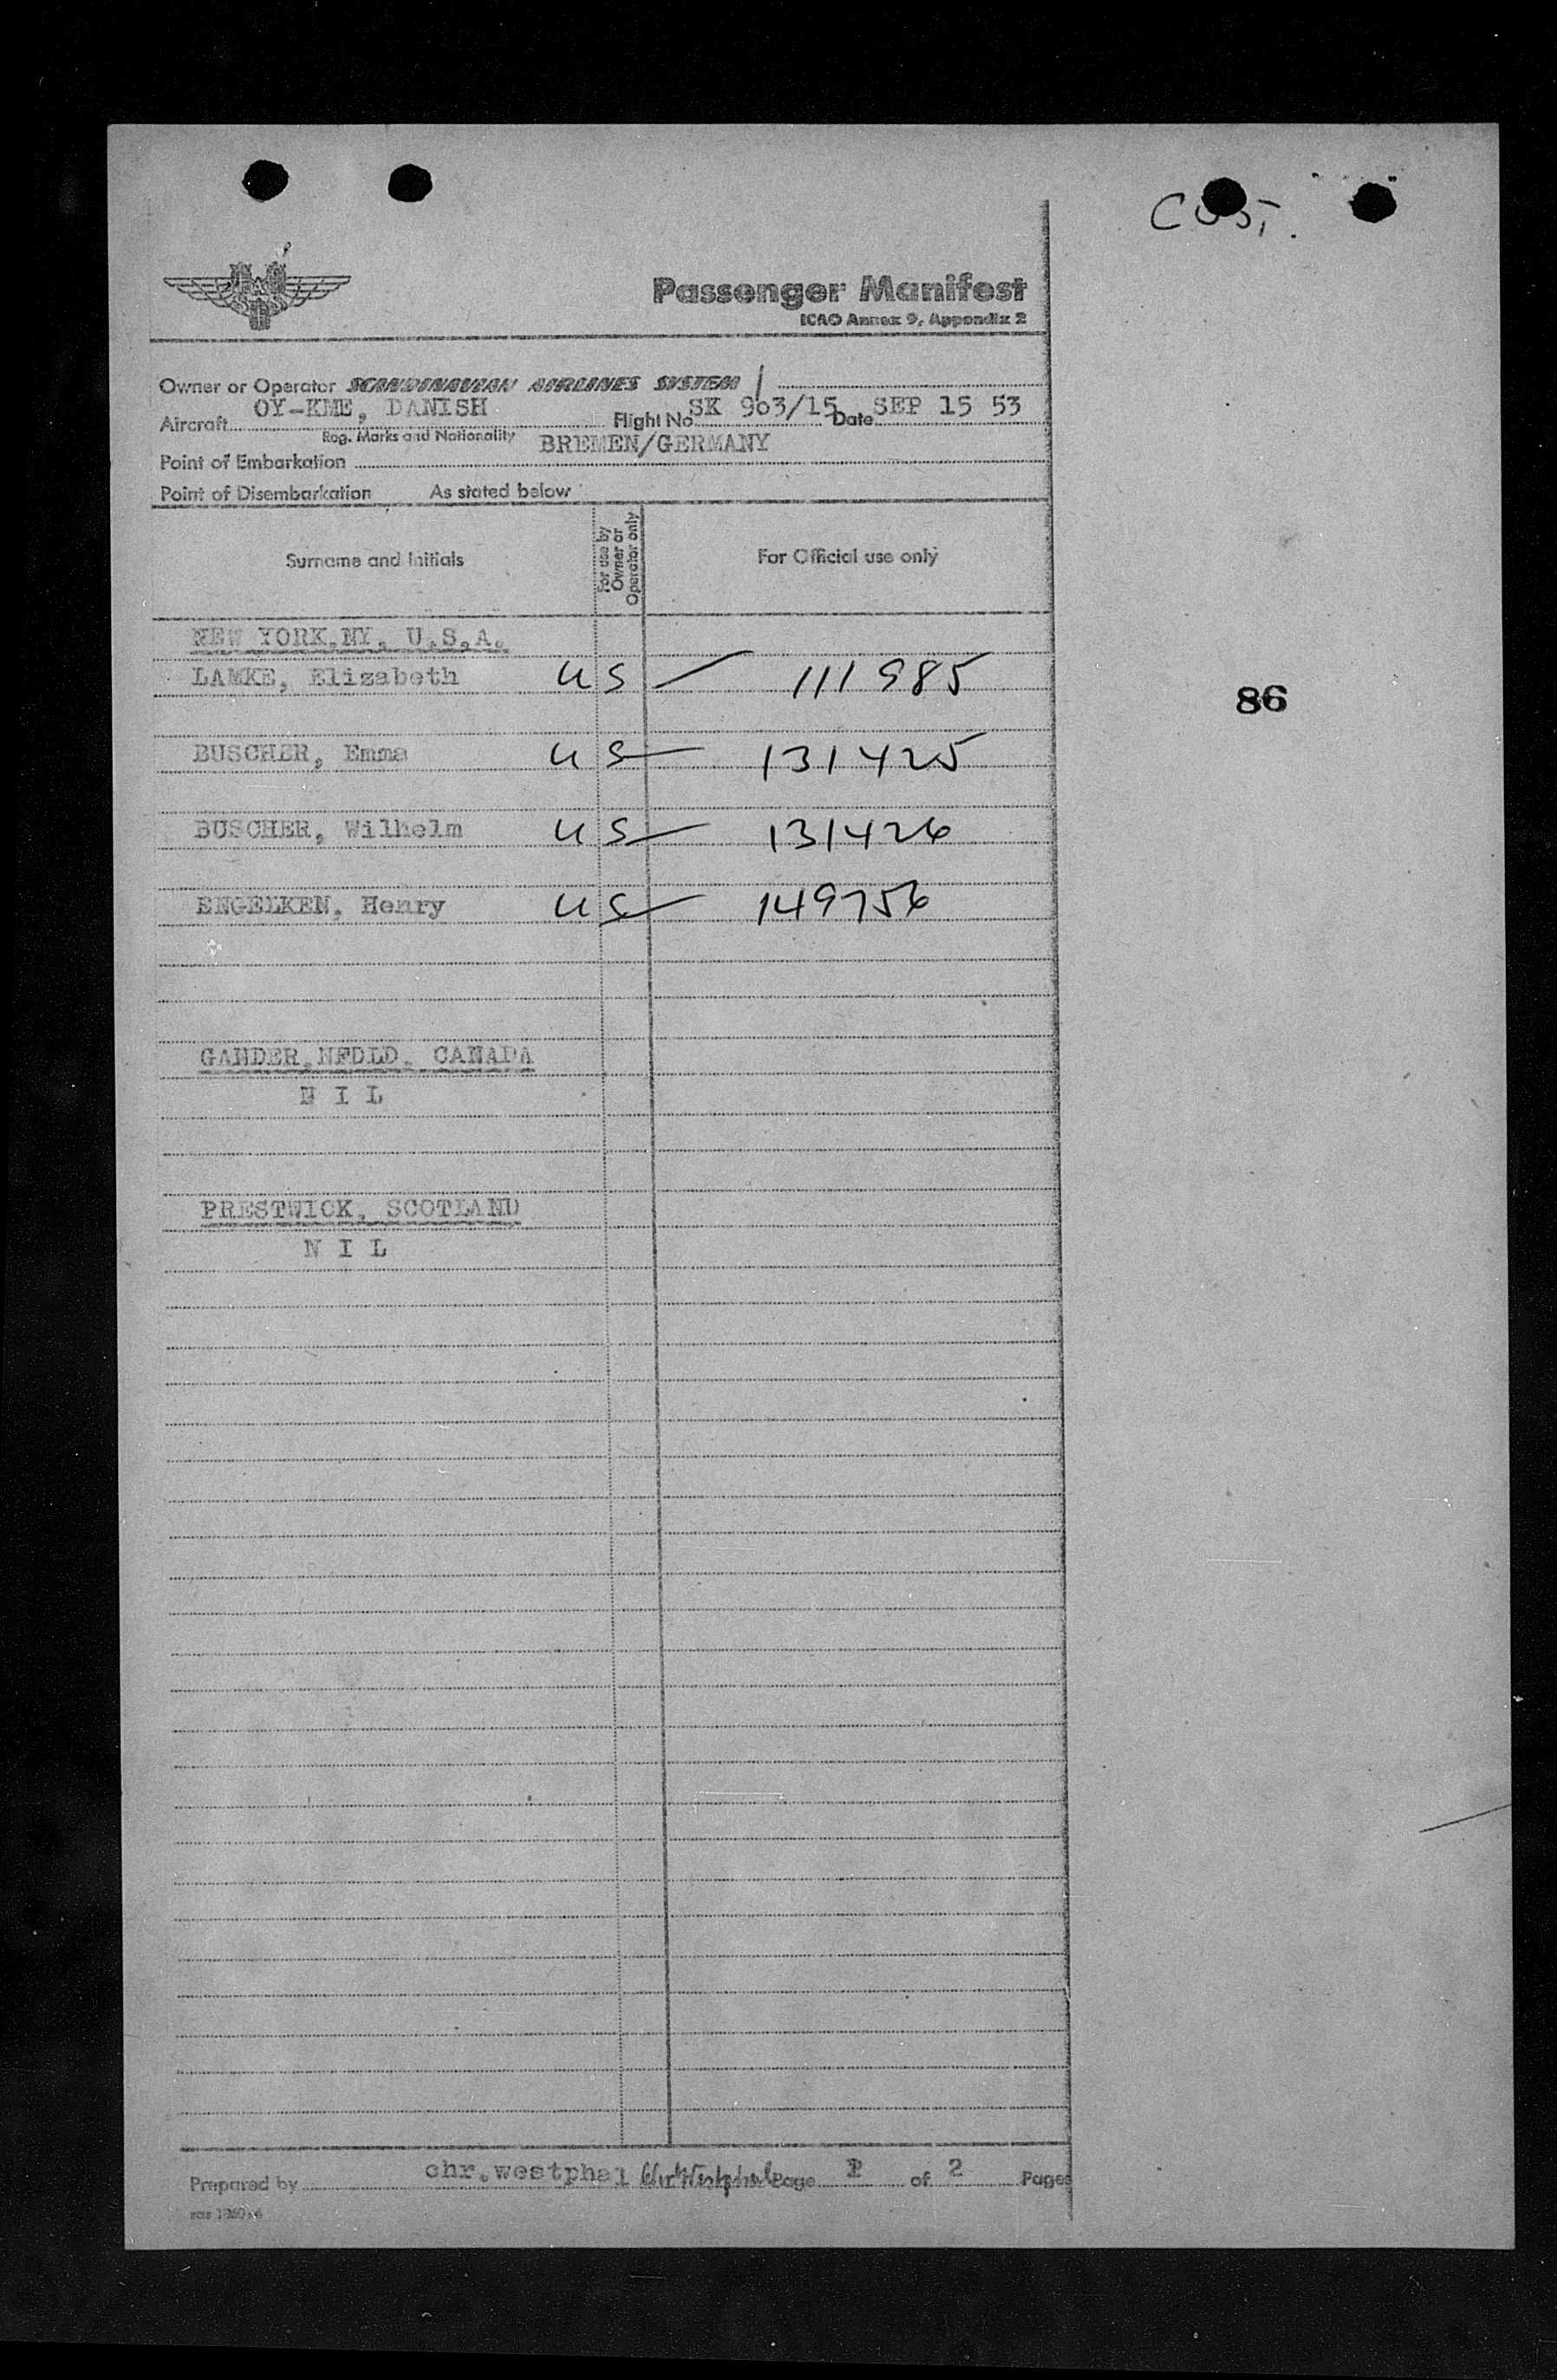 CUST.
SAS
Passenger Manifest
ICAO Annex 9, Appendix 2
Owner or Operator SCANDINAVIAN AIRLINES SYSTEM /
Aircraft OY-KME, DANISH Flight No SK 903/15 Date SEP 15 53
Reg. Marks and Nationality
Point of Embarkation BREMEN/GERMANY
Point of Disembarkation As stated below
Surname and Initials For use by Owner or Operator only For Official use only
NEW YORK,NY, U.S.A.
LAMKE, Elizabeth US 111985
86
BUSCHER, Emma US 131425
BUSCHER, Wilhelm US 131426
ENGELKEN, Henry US 149756
GANDER,NFDLD, CANADA
N I L
PRESTWICK, SCOTLAND
N I L
Prepared by chr.westphal Chr Westphal Page 1 of 2 Pages